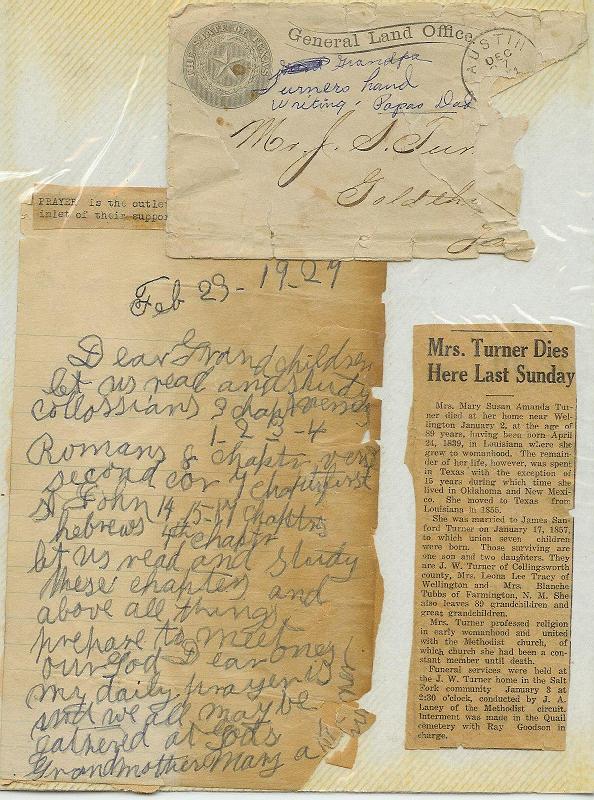 THE STATE OF TEXAS
General Land Office
AUSTIN
DEC
Grandpa
Turners hand
writing. Papas Dad
Mr J. S. Tur
Goldth
PRAYER is the outlet
inlet of their suppor
Feb 23- 19-29
Dear Grandchildren
let us read and study
Collossians 3 chapt
1-2-3-4
Romans 8 chaptr
second cor 4 chaptr
St John 14-15-17 chapters
hebrews 4th chaptr
let us read and study
these chapters and
above all things
prepare to meet
our God Dear ones
my daily prayer is
we all may be
gathered at Gods
Grandmother Mary a
Mrs. Turner Dies
Here Last Sunday
Mrs. Mary Susan Amanda Tur-
ner died at her home near Wel-
lington January 2, at the age of
89 years, having been born April
24, 1839, in Louisiana where she
grew to womanhood. The remain-
der of her life, however, was spent
in Texas with the exception of
15 years during which time she
lived in Oklahoma and New Mexi-
co. She moved to Texas from
Louisiana in 1855.
She was married to James San-
ford Turner on January 17, 1857,
to which union seven children
were born. Those surviving are
one son and two daughters. They
are J. W. Turner of Collingsworth
county, Mrs. Leona Lee Tracy of
Wellington and Mrs. Blanche
Tubbs of Farmington, N. M. She
also leaves 89 grandchildren and
great grandchildren.
Mrs. Turner professed religion
in early womanhood and united
with the Methodist church, of
which church she had been a con-
stant member until death.
Funeral services were held at
the J. W. Turner home in the Salt
Fork community January 3 at
2:30 o'clock, conducted by J. A.
Laney of the Methodist circuit.
Interment was made in the Quail
cemetery with Ray Goodson in
charge.